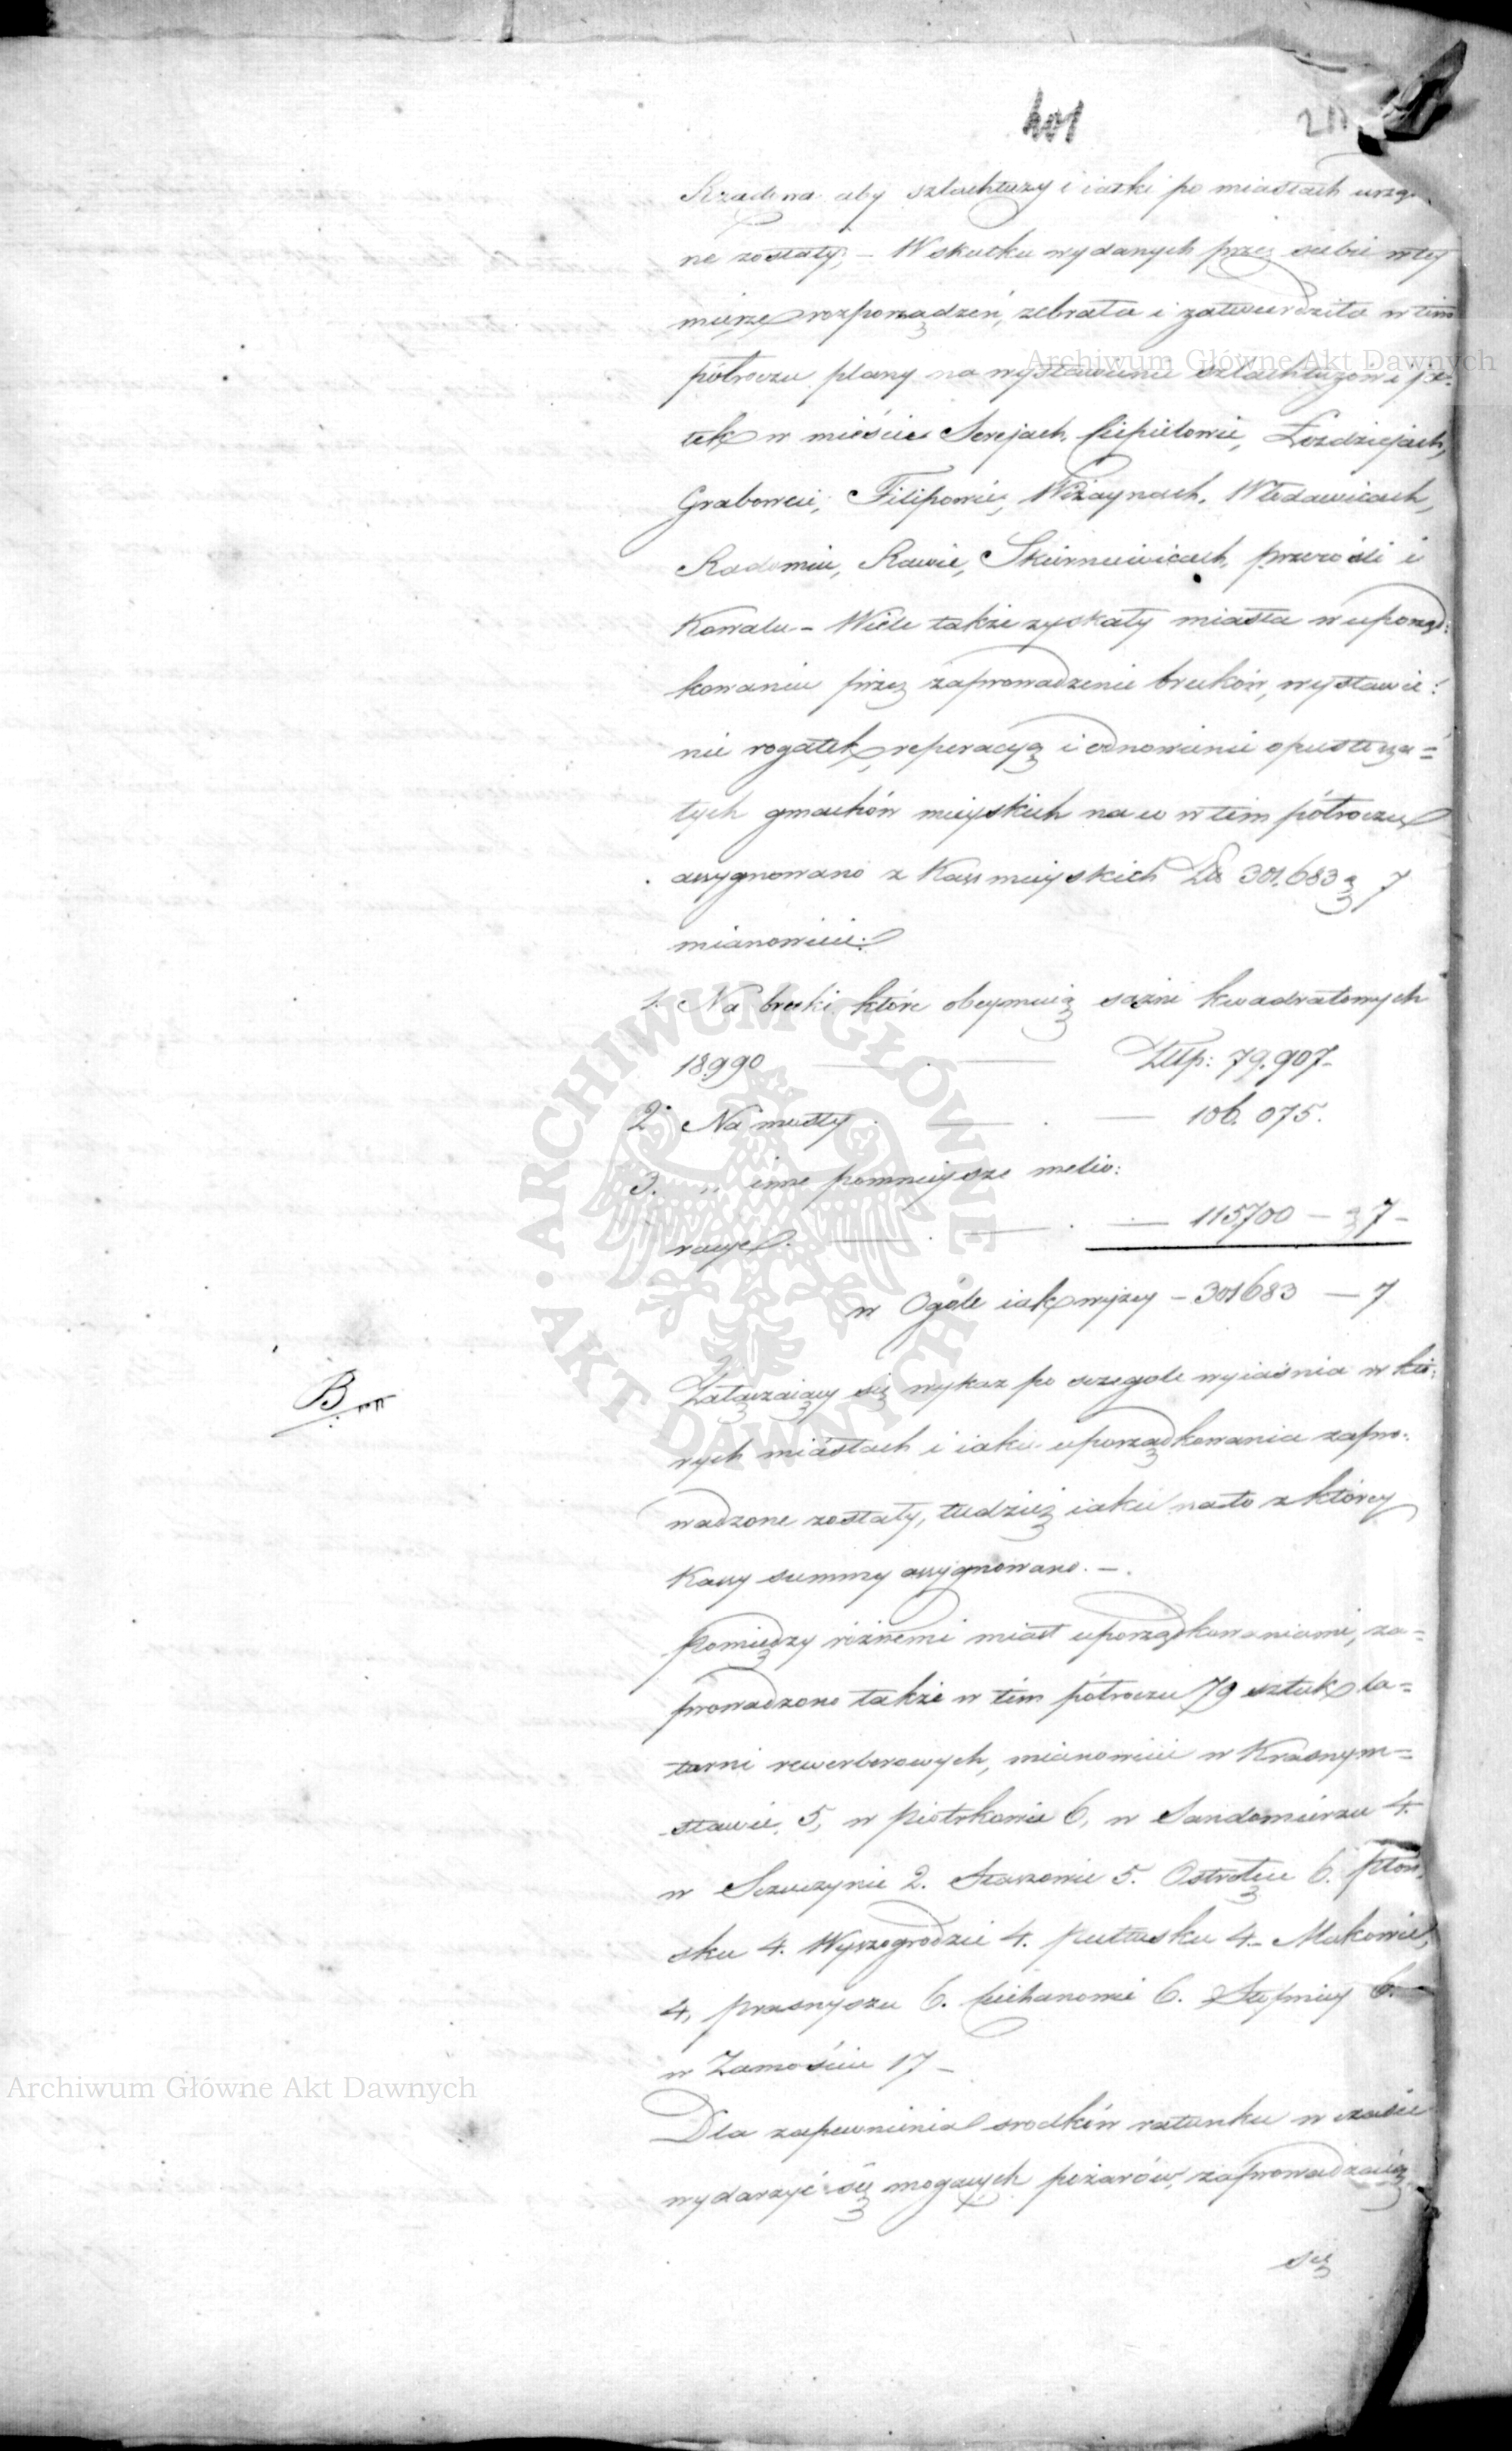 401
211
Rządowa aby szlachtuzy i iatki po miastach urzą
ne zostały, – W skutku wydanych przez siebie w tey
mierze rozporządzeń, zebrała i zatwierdziła w tim
półroczu plany na wystawienie szlachtuzow i ja-
tek w mieście Serejach Ciepielowie, Łozdziejach,
Grabowcu, Filipowie, Wiżaynach, Włodawicach,
Radomiu, Rawie, Skierniewicach, Przerośli i
Kowalu – Wiele także zyskały miasta w uporząd:
kowaniu przez zaprowadzenie bruków, wystawie:
nie rogatek, reperacyą i odnowienie opustosza=
łych gmachów mieyskich na co w tim półroczu
assygnowano z Kass mieyskich Zł 301,683 g 7
mianowicie:
1. Na bruki które obeymuią sążni kwadratowych
18,990 — . — Złłp: 79,907-
2. Na mosty . — . — 106,075.
3. „ inne pomnieysze melio:
racye. — . — . — 115,700 – g 7 –
w Ogóle iak wyżey – 301683 — 7
B
Załączaiący się wykaz po szczególe wyiaśnia w któ:
rych miástach i iakie uporządkowania zapro:
wadzone zostały, tudzież iakie na to z którey
Kassy summy assygnowano. –.
Pomiędzy różnemi miast uporządkowaniami, za=
prowadzono także w tim półroczu 79 sztuk la=
tarni rewerberowych, mianowicie w Krasnym=
stawie 5, w Piotrkowie 6, w Sandomierzu 4.
w Szczuczynie 2. Staszowie 5. Ostrołęce 6. Płoń
sku 4. Wyszogrodzie 4. Pułtusku 4. – Makowie
4, Prasnyszu 6. Ciechanowie 6. Stopnicy 6. –
w Zamościu 17 –
Dla zapewnienia srodków ratunku w czasie
wydarzyć się mogących pożarów, zaprowadzaią
się
Archiwum Główne Akt Dawnych
ARCHIWUM GŁÓWNE AKT DAWNYCH
Archiwum Główne Akt Dawnych